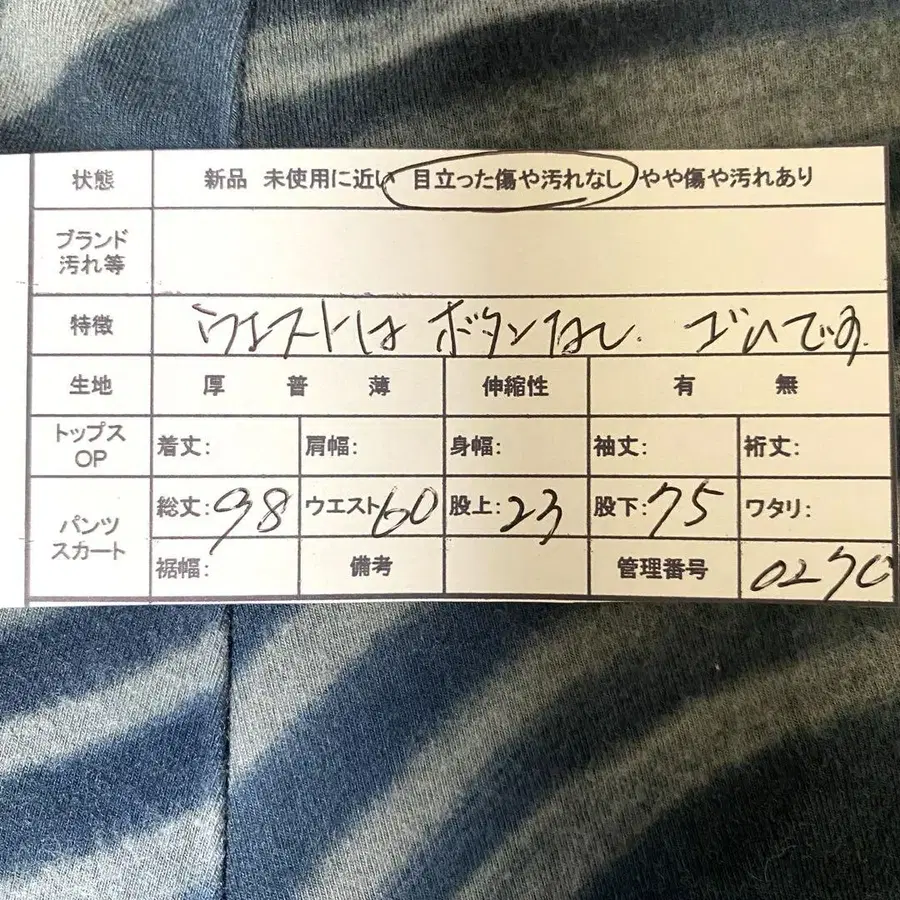 状態 新品 未使用に近い 目立った傷や汚れなし やや傷や汚れあり
ブランド
汚れ等
特徴 ウエストは ボタンなし. ゴムです.
生地 厚 普 薄 伸縮性 有 無
トップス
OP
着丈: 肩幅: 身幅: 袖丈: 裄丈:
パンツ
スカート
総丈:98 ウエスト60 股上:23 股下:75 ワタリ:
裾幅: 備考 管理番号 027C